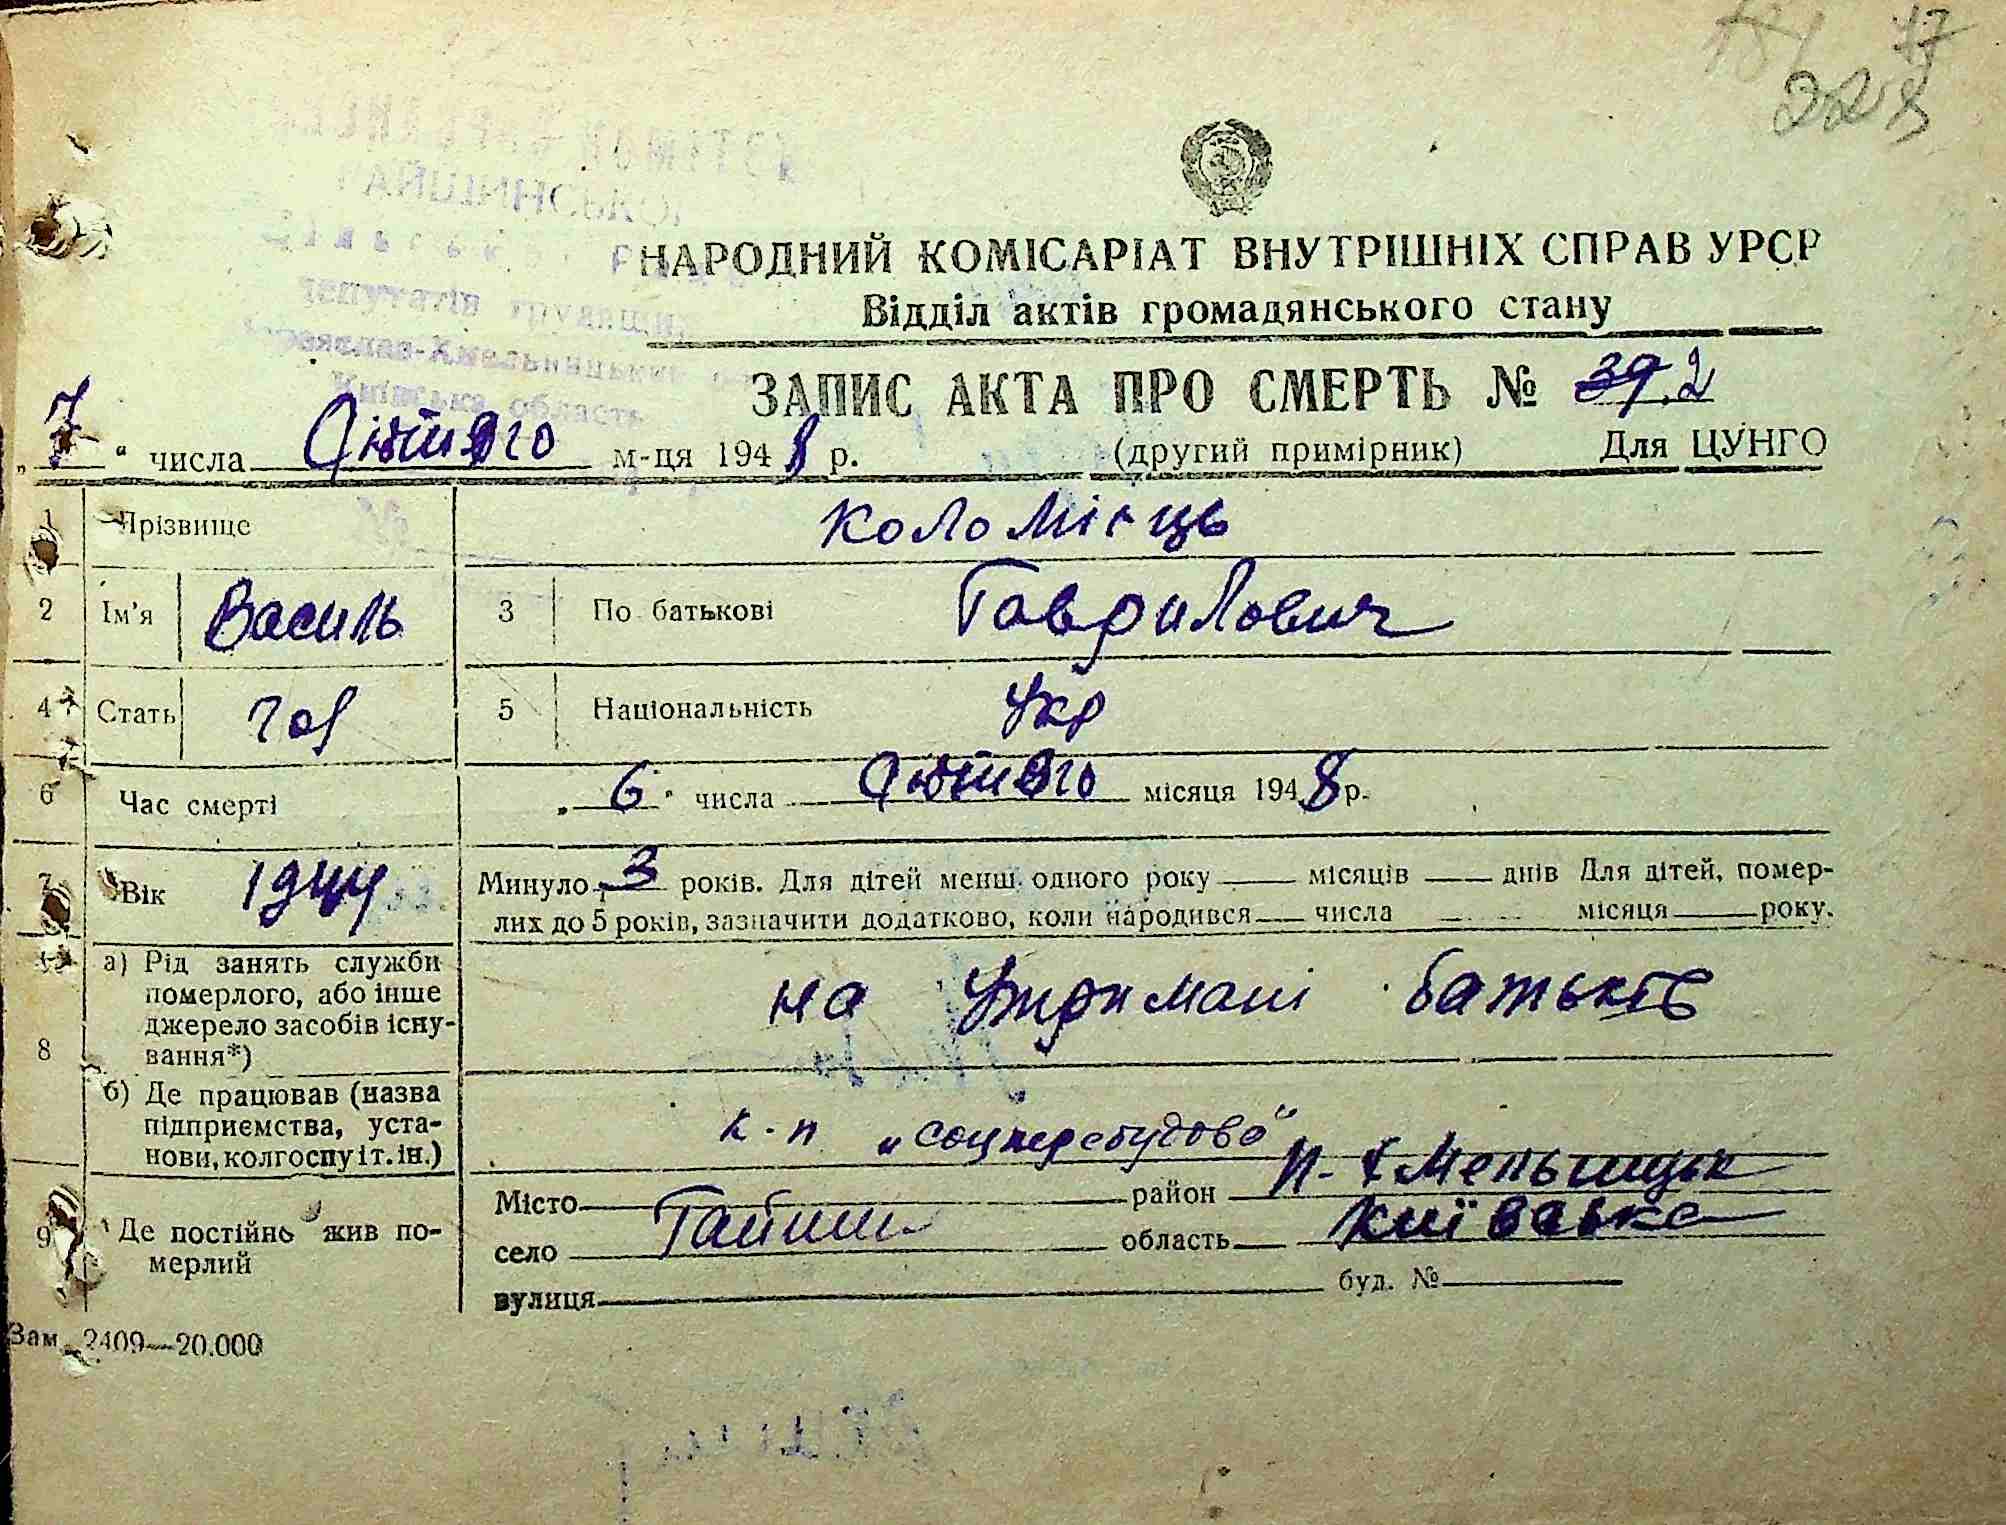 17
228
НАРОДНИЙ КОМІСАРІАТ ВНУТРІШНІХ СПРАВ УРСР
Відділ актів громадянського стану
депутатів трудящих
Київська область
ЗАПИС АКТА ПРО СМЕРТЬ № 39.2
„7“ числа Лютого м-ця 1948 р. (другий примірник) Для ЦУНГО
1 Прізвище Коломієць
2 Ім'я Василь 3 По батькові Гаврилович
4 Стать чол 5 Національність Укр
6 Час смерті „6“ числа Лютого місяця 1948 р.
7 Вік 1944 Минуло 3 років. Для дітей менш одного року — місяців — днів Для дітей, помер-
лих до 5 років, зазначити додатково, коли народився — числа — місяця — року.
8 а) Рід занять служби померлого, або інше джерело засобів існу-вання*) на Утримані батьків
б) Де працював (назва підприємства, уста-нови, колгоспу і т. ін.) к-п „соцперебудова"
9 Де постійно жив по-мерлий Місто — район П-Хмельницьк
село Гайшин область Київська
вулиця — буд. № —
Зам. 2409—20.000